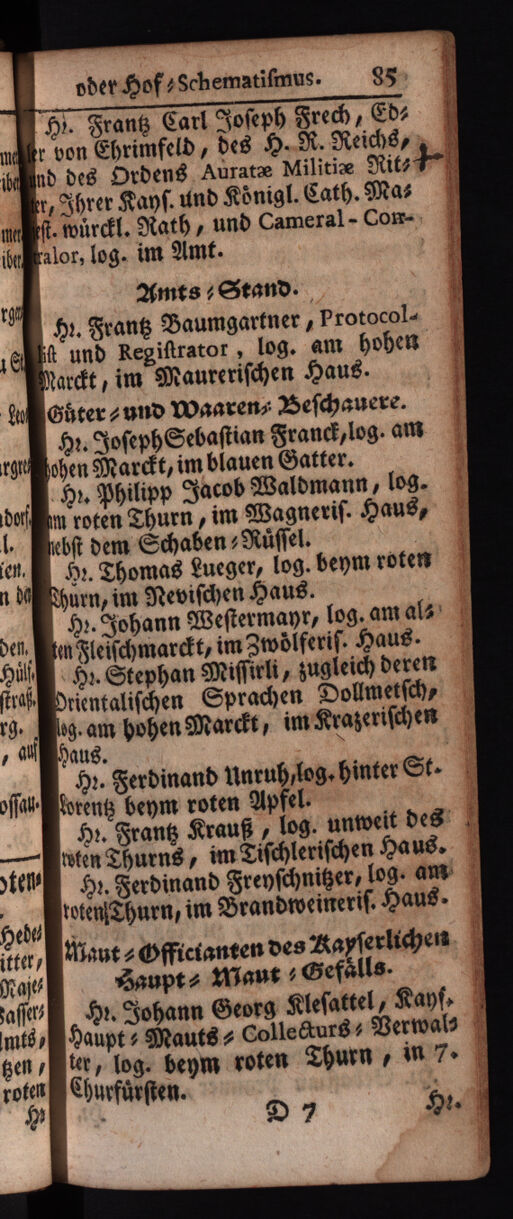 oder Hof⸗Schematismus. 85
Hr. Frantz Carl Joseph Frech, Ed⸗
ler von Ehrimfeld, des H. R. Reichs,
und des Ordens Auratæ Militiæ Rit⸗
ter, Ihrer Kays. und Königl. Cath. Ma⸗
jest. würckl. Rath, und Cameral-Con-
tralor, log. im Amt.
Amts⸗Stand.
Hr. Frantz Baumgartner, Protocol-
list und Registrator, log. am hohen
Marckt, im Maurerischen Haus.
Güter⸗und Waaren⸗Beschauere.
Hr. Joseph Sebastian Franck, log. am
hohen Marckt, im blauen Gatter.
Hr. Philipp Jacob Waldmann, log.
am roten Thurn, im Wagneris. Haus,
nebst dem Schaben⸗Rüssel.
Hr. Thomas Lueger, log. beym roten
Thurn, im Nevischen Haus.
Hr. Johann Westermayr, log. am al⸗
ten Fleischmarckt, im Zwölferis. Haus.
Hr. Stephan Missirli, zugleich deren
Orientalischen Sprachen Dollmetsch,
log. am hohen Marckt, im Krazerischen
Haus.
Hr. Ferdinand Unruh, log. hinter St.
Lorentz beym roten Apfel.
Hr. Frantz Krauß, log. unweit des
roten Thurns, im Tischlerischen Haus.
Hr. Ferdinand Freyschnitzer, log. am
roten Thurn, im Brandweineris. Haus.
Maut⸗Officianten des Kayserlichen
Haupt⸗Maut⸗Gefälls.
Hr. Johann Georg Klesattel, Kays.
Haupt⸗Mauts⸗Collecturs⸗Verwal⸗
ter, log. beym roten Thurn, in 7.
Churfürsten.
D 7 Hr.